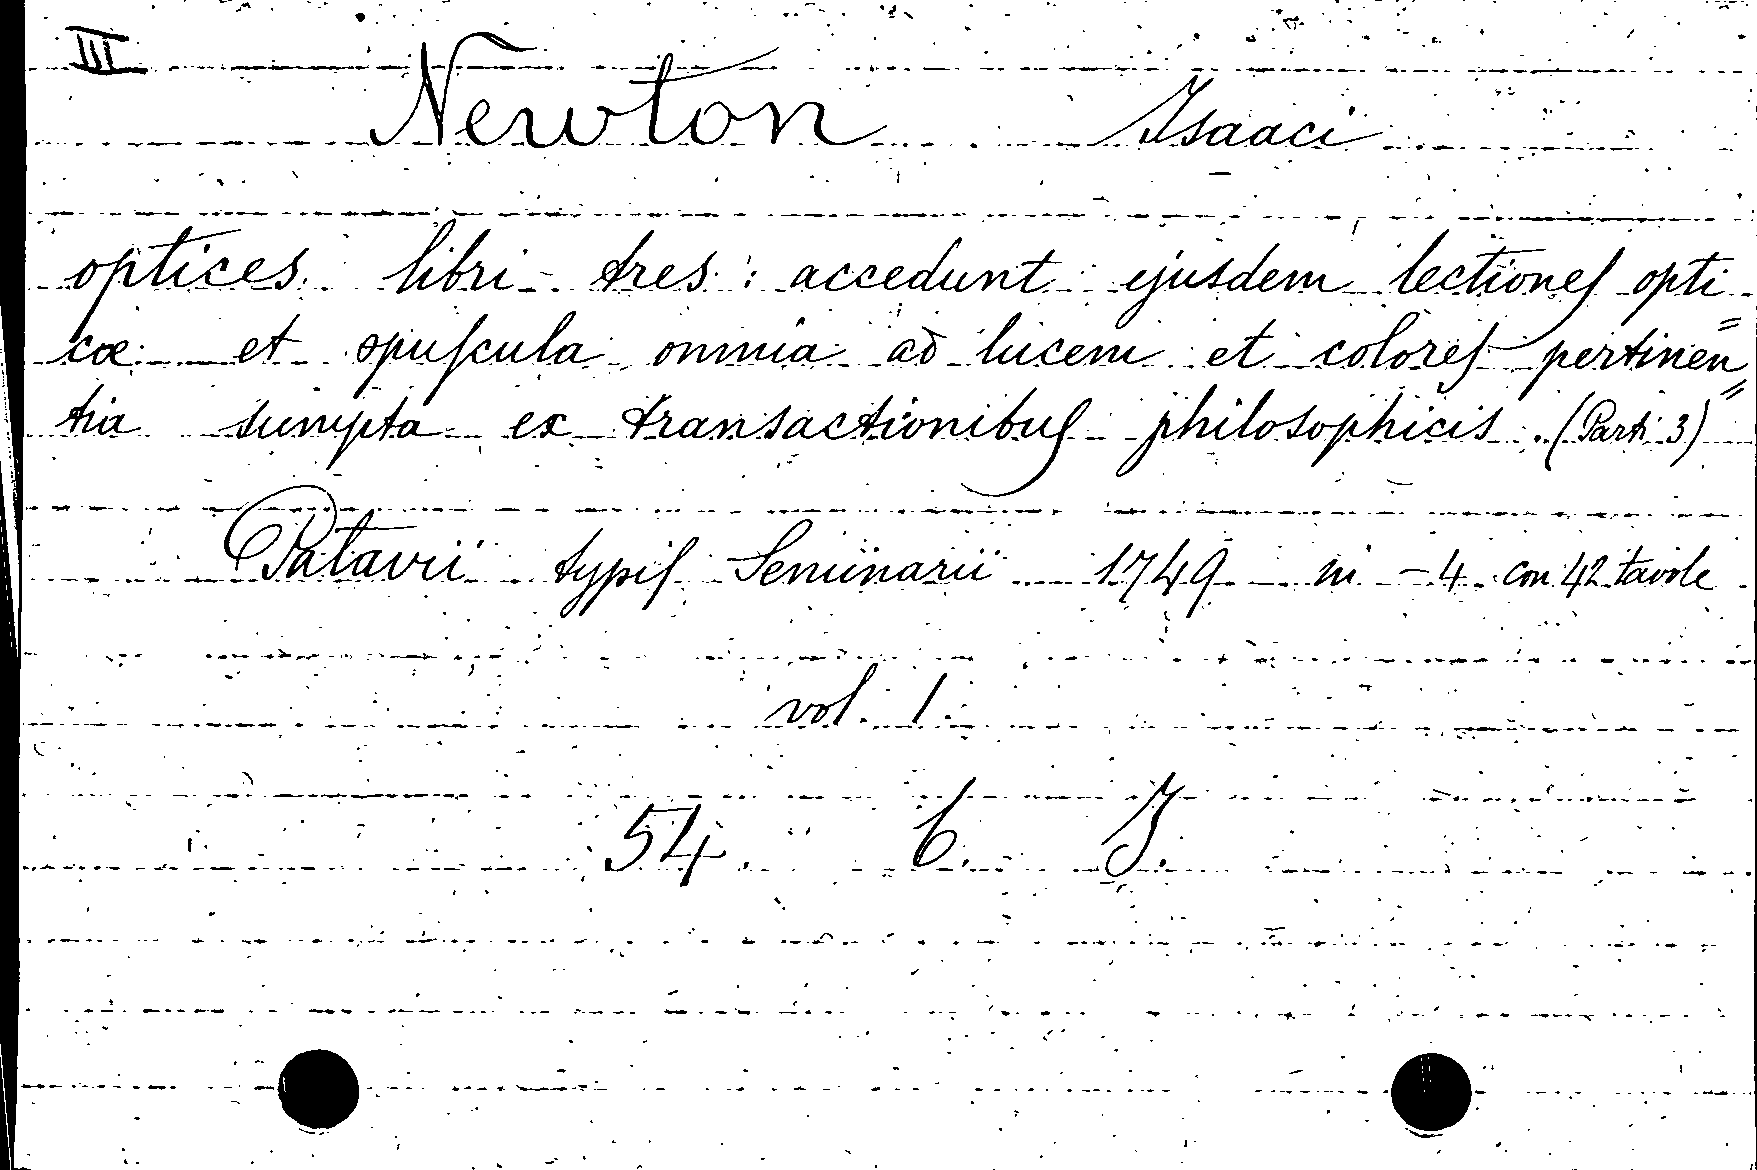 III
Newton Isaaci
optices libri tres : accedunt ejusdem lectiones opti=
cæ et opuscula omnia ad lucem et colores pertinen=
tia sumpta ex transactionibus philosophicis . (Parti 3)
Patavii typis Seminarii 1749 in - 4 con 42 tavole
vol. 1.
54. 6. J.